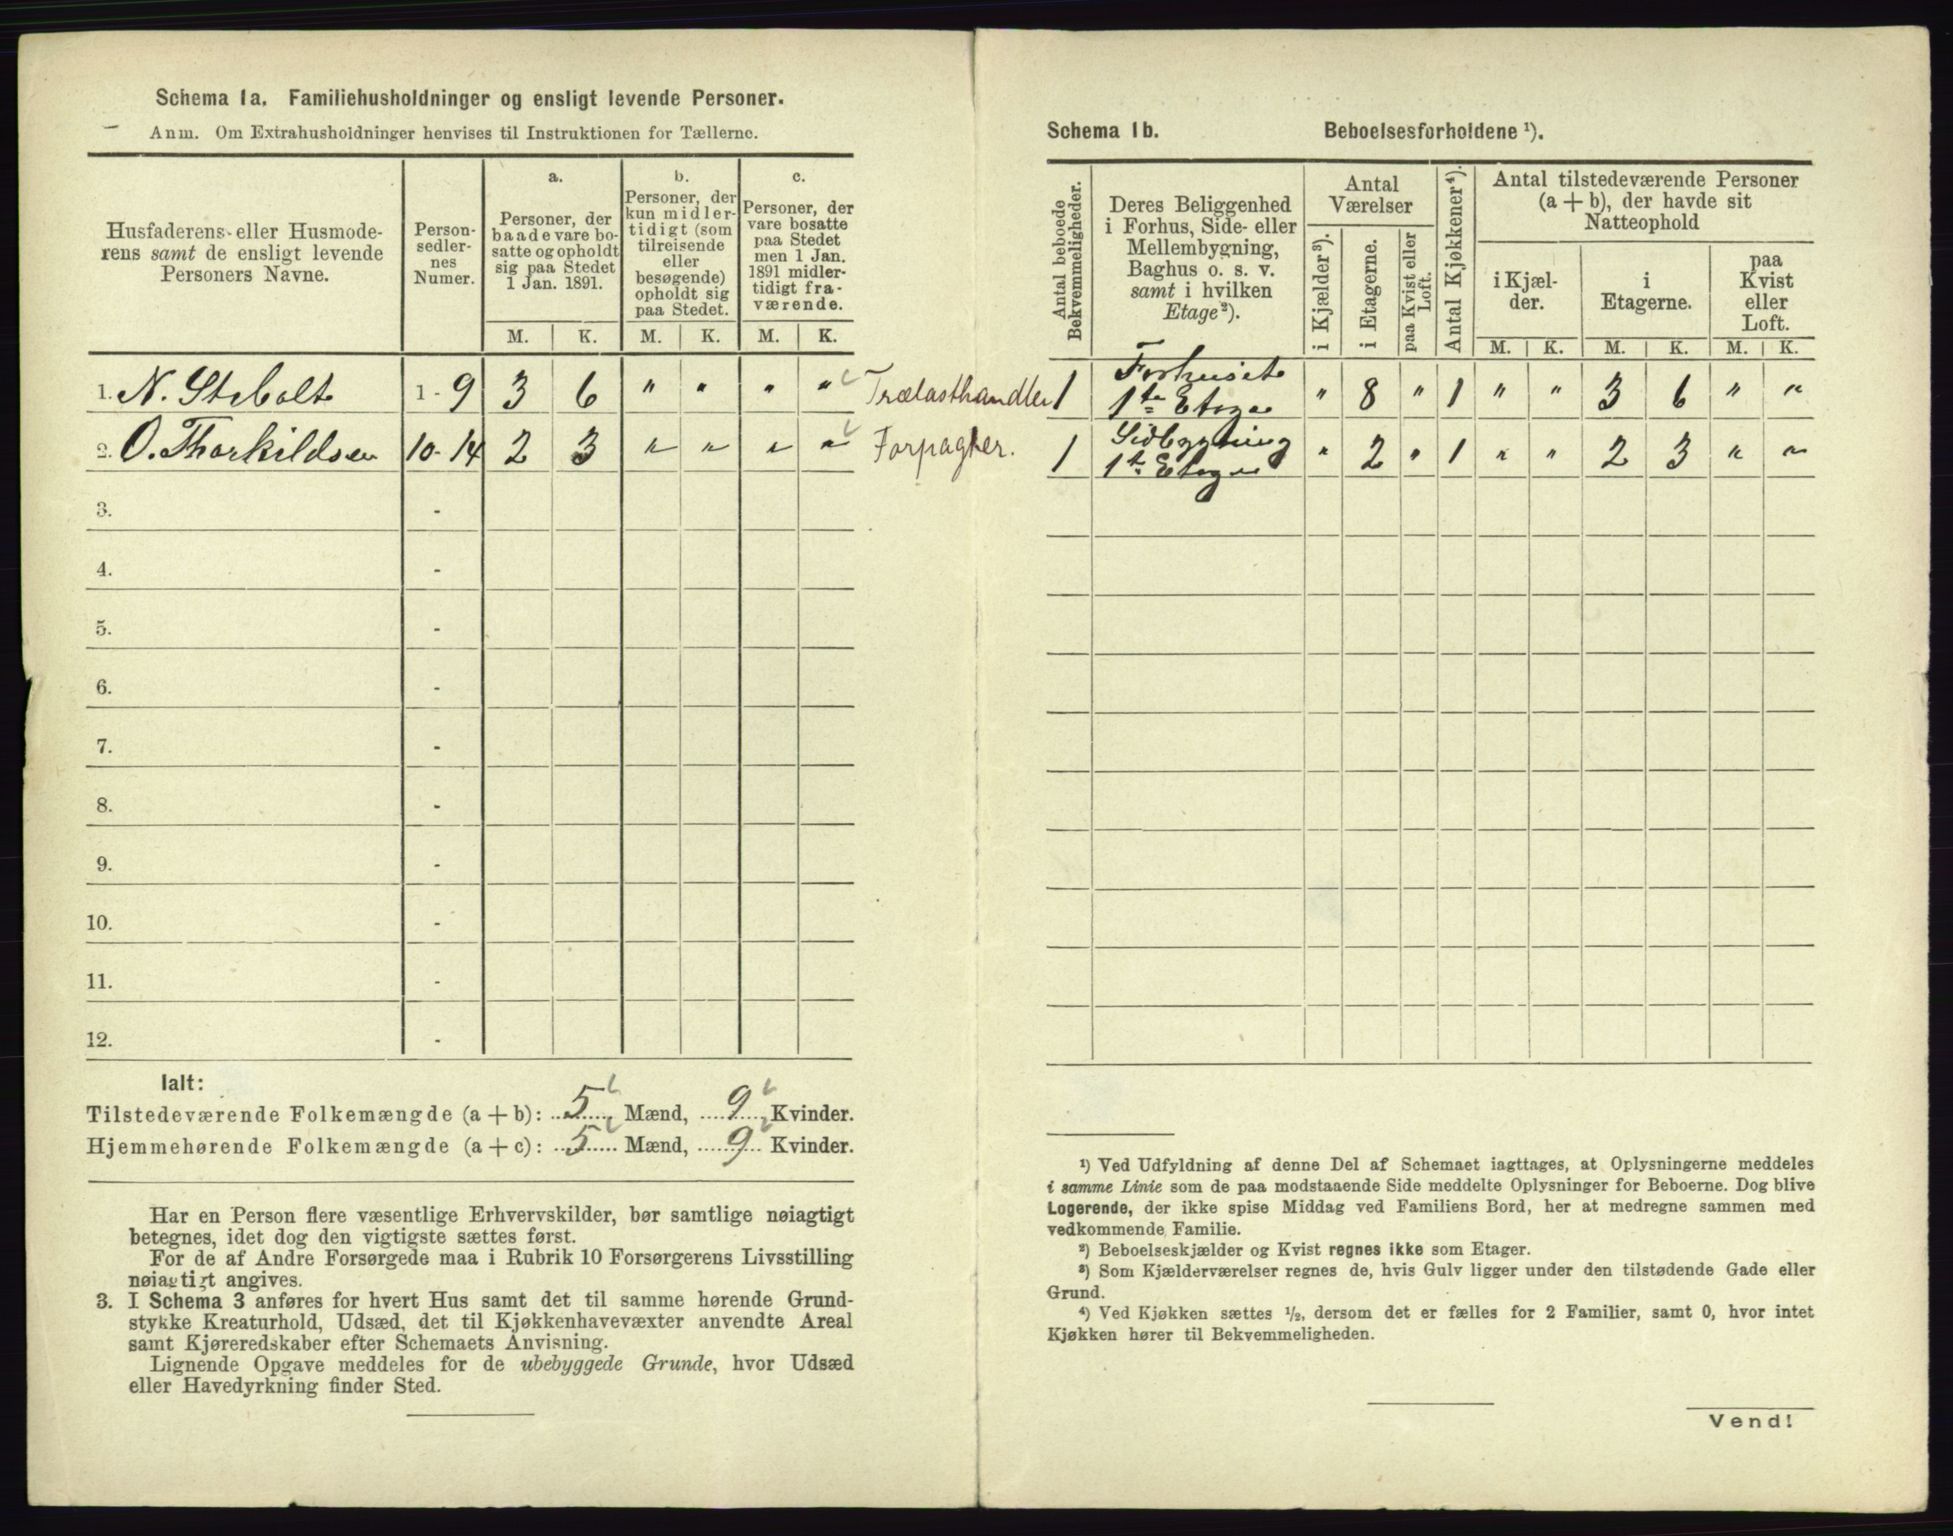 Schema 1a. Familiehusholdninger og ensligt levende Personer.
Anm. Om Extrahusholdninger henvises til Instruktionen for Tællerne.
Husfaderens eller Husmode-
rens samt de ensligt levende
Personers Navne.
Person-
sedler-
nes
Numer.
a.
Personer, der
baade vare bo-
satte og opholdt
sig paa Stedet
1 Jan. 1891.
b.
Personer, der
kun midler-
tidigt (som
tilreisende
eller
besøgende)
opholdt sig
paa Stedet.
c.
Personer, der
vare bosatte
paa Stedet
men 1 Jan.
1891 midler-
tidigt fra-
værende.
M. K. M. K. M. K.
1. N. Stibolt 1 - 9 3 6 " " " " Trælasthandler
2. O. Thorkildsen 10 - 14 2 3 " " " " Forpagter.
3. -
4. -
5. -
6. -
7. -
8. -
9. -
10. -
11. -
12. -
Ialt:
Tilstedeværende Folkemængde (a + b): 5 Mænd, 9 Kvinder.
Hjemmehørende Folkemængde (a + c): 5 Mænd, 9 Kvinder.
Har en Person flere væsentlige Erhvervskilder, bør samtlige nøiagtigt
betegnes, idet dog den vigtigste sættes først.
For de af Andre Forsørgede maa i Rubrik 10 Forsørgerens Livsstilling
nøiagtigt angives.
3. I Schema 3 anføres for hvert Hus samt det til samme hørende Grund-
stykke Kreaturhold, Udsæd, det til Kjøkkenhavevæxter anvendte Areal
samt Kjøreredskaber efter Schemaets Anvisning.
Lignende Opgave meddeles for de ubebyggede Grunde, hvor Udsæd
eller Havedyrkning finder Sted.
Schema 1b. Beboelsesforholdene ¹).
Antal beboede
Bekvemmeligheder.
Deres Beliggenhed
i Forhus, Side- eller
Mellembygning,
Baghus o. s. v.
samt i hvilken
Etage²).
Antal
Værelser
i Kjælder³).
i Etagerne.
paa Kvist eller
Loft.
Antal Kjøkkener⁴).
Antal tilstedeværende Personer
(a + b), der havde sit
Natteophold
i Kjæl-
der.
i
Etagerne.
paa
Kvist
eller
Loft.
M. K. M. K. M. K.
1 Forhuset
1te Etage " 8 " 1 " " 3 6 " "
1 Sidbygning
1te Etage " 2 " 1 " " 2 3 " "
¹) Ved Udfyldning af denne Del af Schemaet iagttages, at Oplysningerne meddeles
i samme Linie som de paa modstaaende Side meddelte Oplysninger for Beboerne. Dog blive
Logerende, der ikke spise Middag ved Familiens Bord, her at medregne sammen med
vedkommende Familie.
²) Beboelseskjælder og Kvist regnes ikke som Etager.
³) Som Kjælderværelser regnes de, hvis Gulv ligger under den tilstødende Gade eller
Grund.
⁴) Ved Kjøkken sættes ½, dersom det er fælles for 2 Familier, samt 0, hvor intet
Kjøkken hører til Bekvemmeligheden.
Vend!